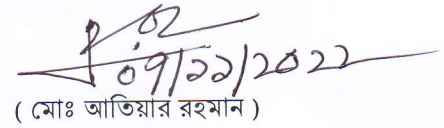 ০৭/১১/২০২২
( মোঃ আতিয়ার রহমান )